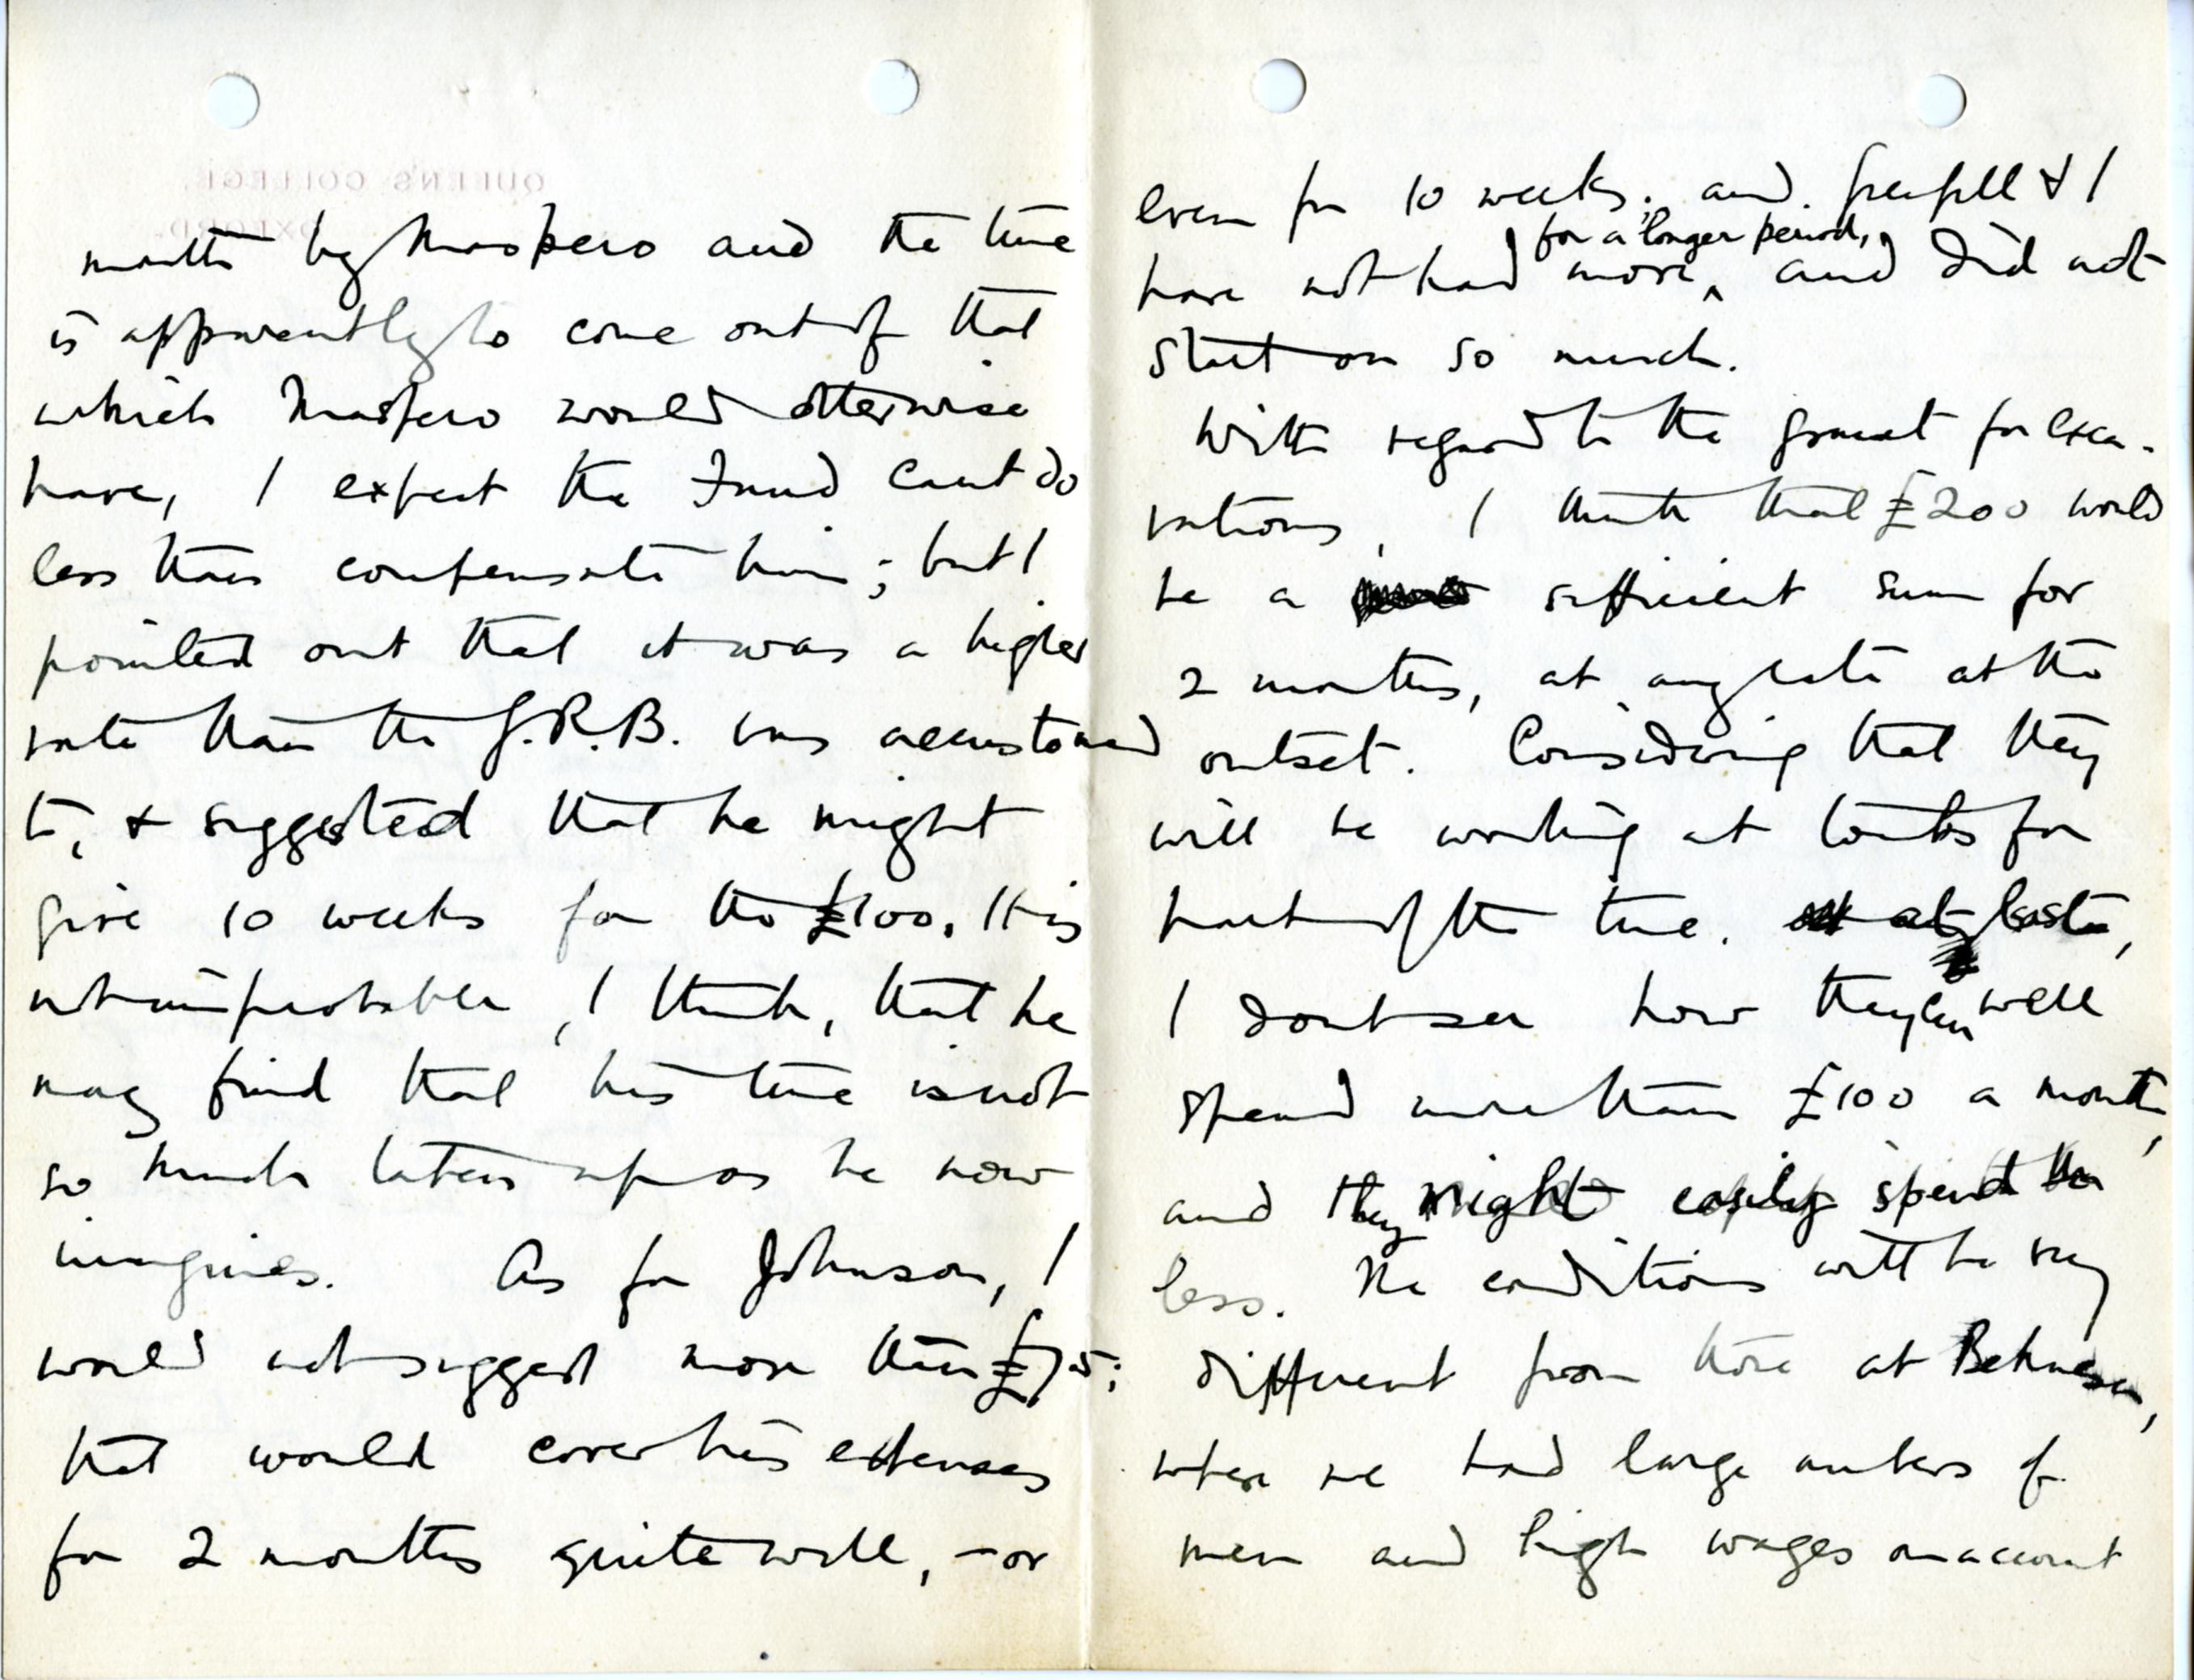 QUEEN'S COLLEGE,
OXFORD.
month by Maspero and the time
is apparently to come out of that
which Maspero would otherwise
have, I expect the Fund cant do
less than compensate him; but I
pointed out that it was a higher
rate than the G.R.B. was accustomed
to, & suggested that he might
give 10 weeks for the £100. It is
not improbable, I think, that he
may find that his time is not
so much taken up as he now
imagines. As for Johnson, I
would not suggest more than £75;
that would cover his expenses
for 2 months quite well, – or
even for 10 weeks; and Grenfell & I
for a longer period,
have not had more, and did not
start on so much.
With regard to the grant for exca-
vations, I think that £200 would
be a sufficient sum for
2 months, at any rate at the
outset. Considering that they
will be working at tombs for
part of the time, at
I dont see how they can well
spend more than £100 a month,
and they might easily spend
less. The conditions will be very
different from those at Behnesa,
where we had large numbers of
men and high wages on account